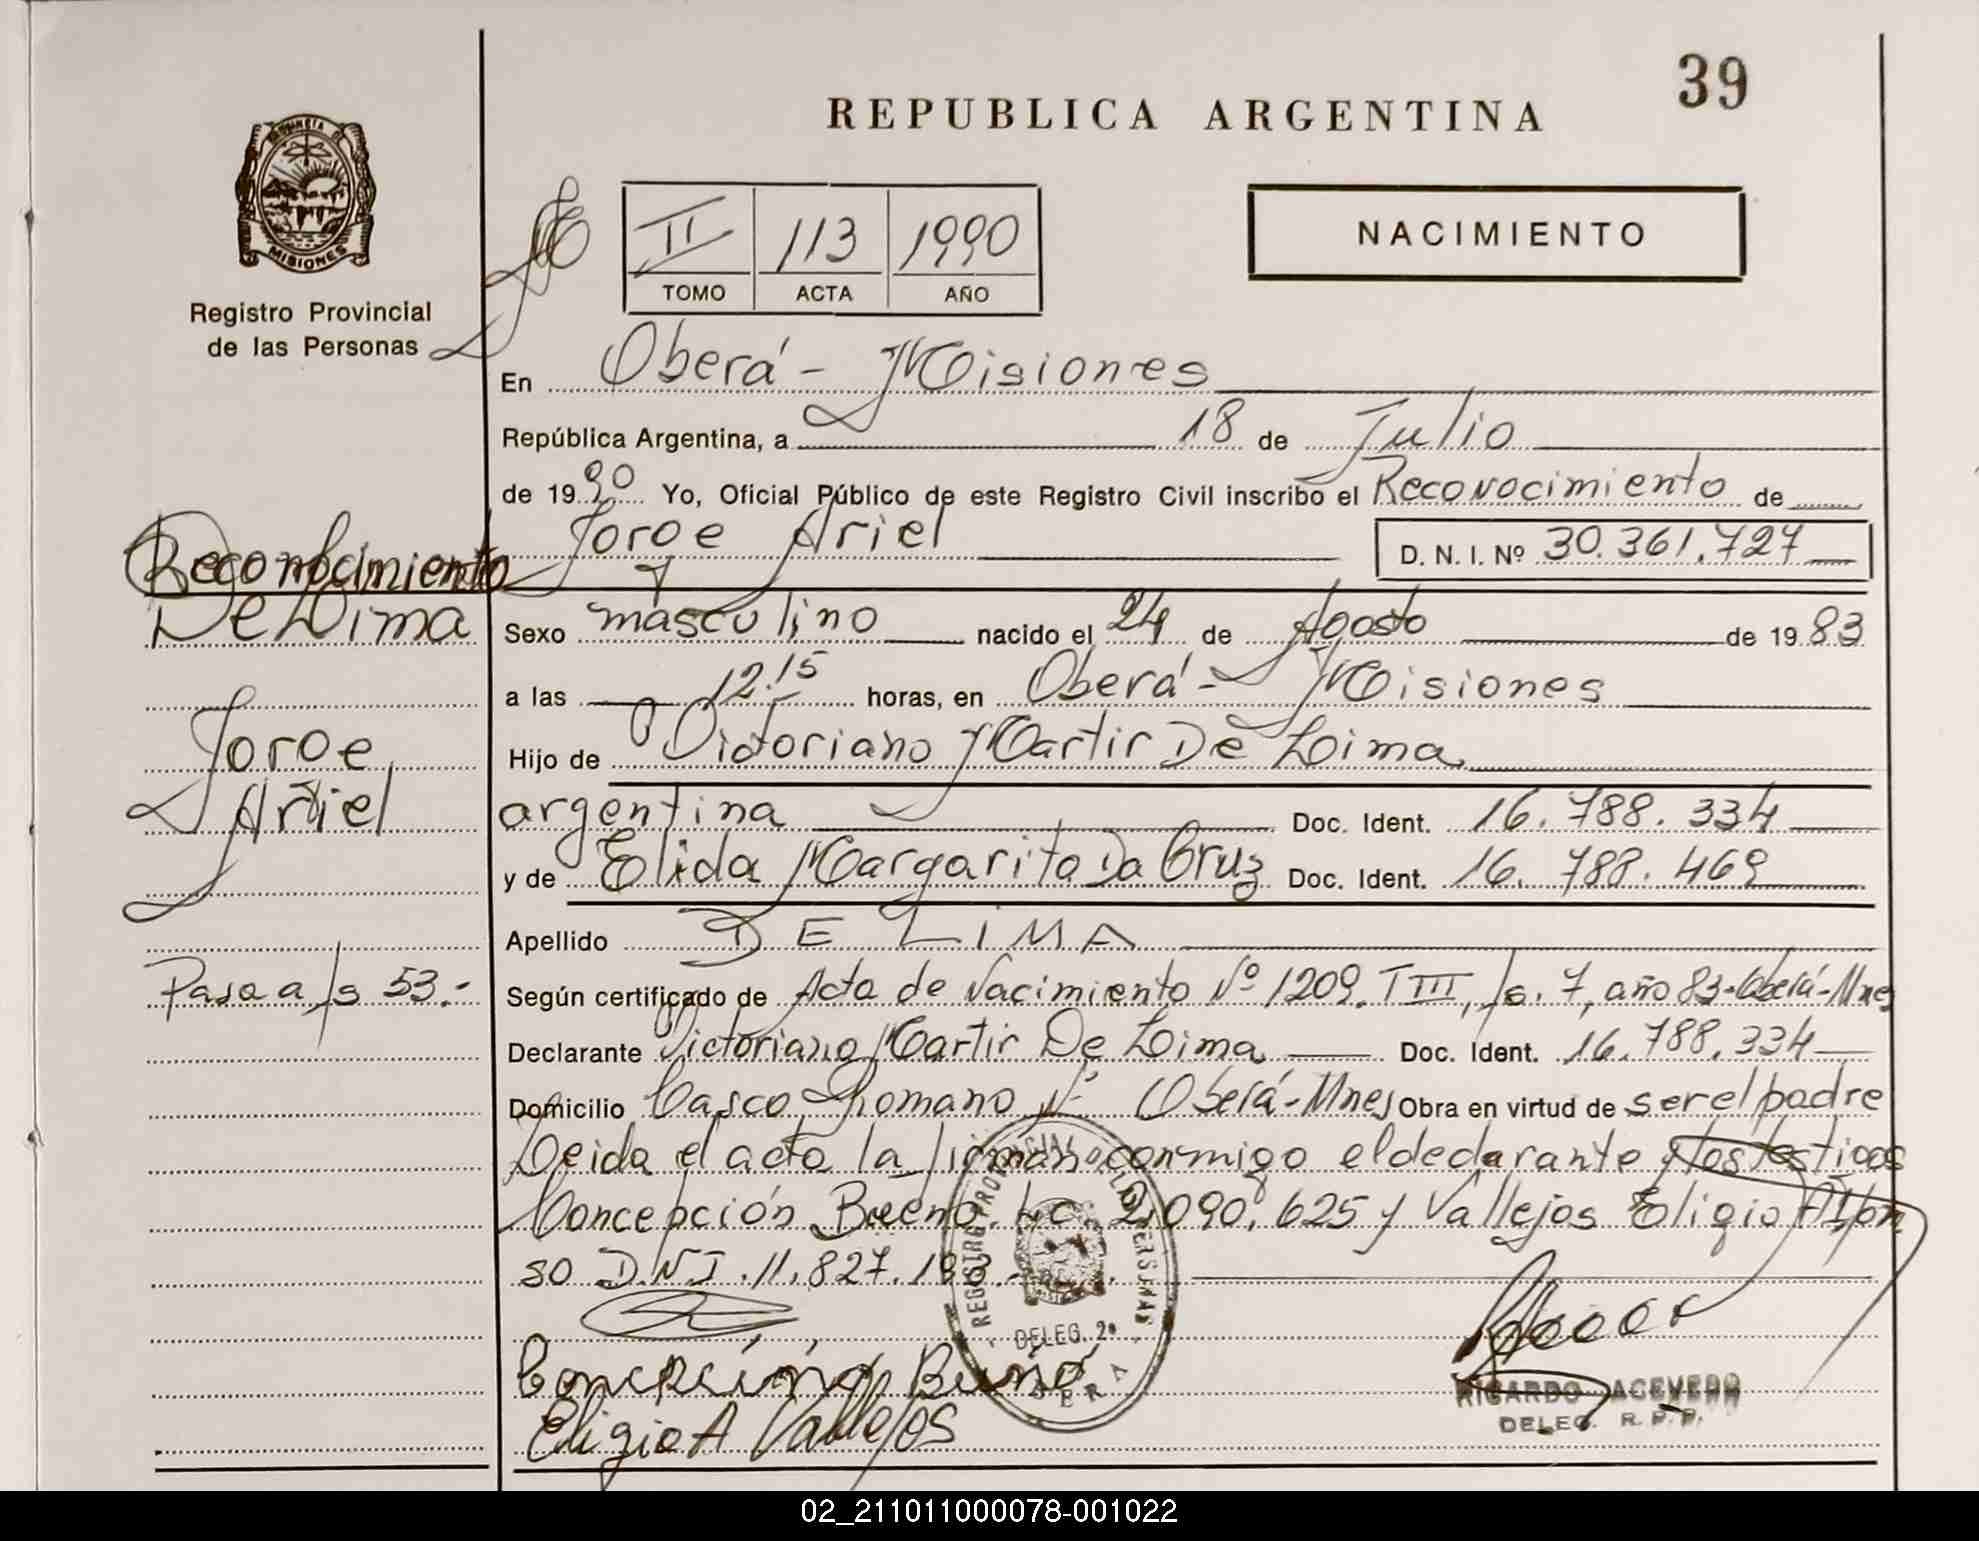 39
REPUBLICA ARGENTINA
PROVINCIA DE MISIONES
Registro Provincial
de las Personas
II 113 1990
TOMO ACTA AÑO
NACIMIENTO
En Oberá - Misiones
República Argentina, a 18 de Julio
de 1990 Yo, Oficial Público de este Registro Civil inscribo el Reconocimiento de
Jorge Ariel D. N. I. Nº 30.361.727
Sexo masculino nacido el 24 de Agosto de 1983
a las 12.15 horas, en Oberá - Misiones
Hijo de Victoriano Martir De Lima
argentina Doc. Ident. 16.788.334
y de Elida Margarita Da Cruz Doc. Ident. 16.788.469
Apellido DE LIMA
Según certificado de Acta de Nacimiento Nº 1209, T III, fs. 7, año 83-Oberá-Mnes
Declarante Victoriano Martir De Lima Doc. Ident. 16.788.334
Domicilio Casco Romano Oberá-Mnes Obra en virtud de ser el padre
Leida el acta la firman conmigo el declarante y los testigos
Concepción Bueno. L.C. 2.090.625 y Vallejos Eligio Alfon
so D.N.I. 11.827.
Reconocimiento
De Lima
Jorge
Ariel
Pasa a fs 53.-
REGISTRO PROVINCIAL DE LAS PERSONAS
DELEG. 2ª
OBERA
Concepción Bueno
Eligio A Vallejos
RICARDO ACEVEDO
DELEG. R. P. P.
02_211011000078-001022